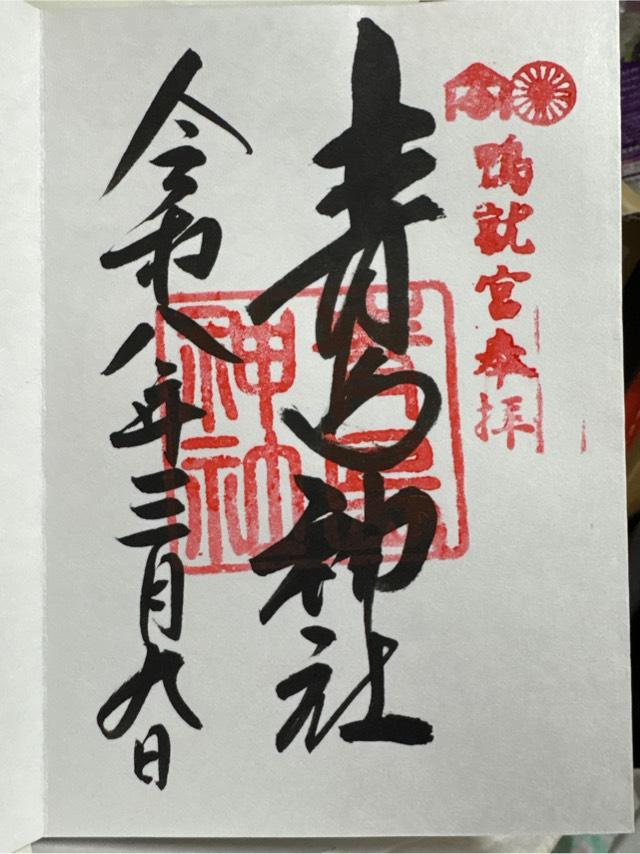 鴨就宮奉拝
青島神社
青島
神社
令和八年三月九日